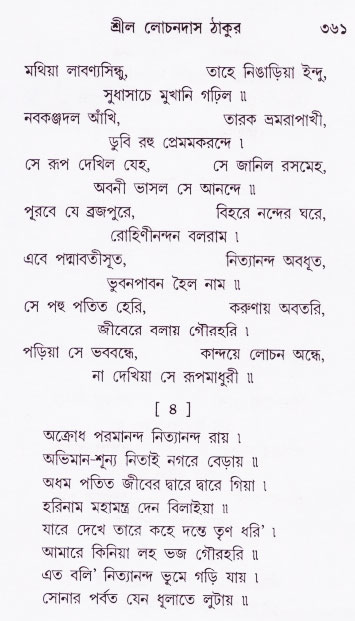 শ্রীল লোচনদাস ঠাকুর ৩৬১
মথিয়া লাবণ্যসিন্ধু, তাহে নিঙাড়িয়া ইন্দু,
সুধাসাচে মুখানি গঢ়িল ॥
নবকঞ্জদল আঁখি, তারক ভ্রমরাপাখী,
ডুবি রহু প্রেমমকরন্দে ৷
সে রূপ দেখিল যেহ, সে জানিল রসমেহ,
অবনী ভাসল সে আনন্দে ॥
পূরবে যে ব্রজপুরে, বিহরে নন্দের ঘরে,
রোহিণীনন্দন বলরাম ৷
এবে পদ্মাবতীসূত, নিত্যানন্দ অবধূত,
ভুবনপাবন হৈল নাম ॥
সে পহু পতিত হেরি, করুণায় অবতরি,
জীবেরে বলায় গৌরহরি ৷
পড়িয়া সে ভববন্ধে, কান্দয়ে লোচন অন্ধে,
না দেখিয়া সে রূপমাধুরী ॥
[ ৪ ]
অক্রোধ পরমানন্দ নিত্যানন্দ রায় ৷
অভিমান-শূন্য নিতাই নগরে বেড়ায় ॥
অধম পতিত জীবের দ্বারে দ্বারে গিয়া ৷
হরিনাম মহামন্ত্র দেন বিলাইয়া ॥
যারে দেখে তারে কহে দন্তে তৃণ ধরি’ ৷
আমারে কিনিয়া লহ ভজ গৌরহরি ॥
এত বলি’ নিত্যানন্দ ভূমে গড়ি যায় ৷
সোনার পর্বত যেন ধূলাতে লুটায় ॥